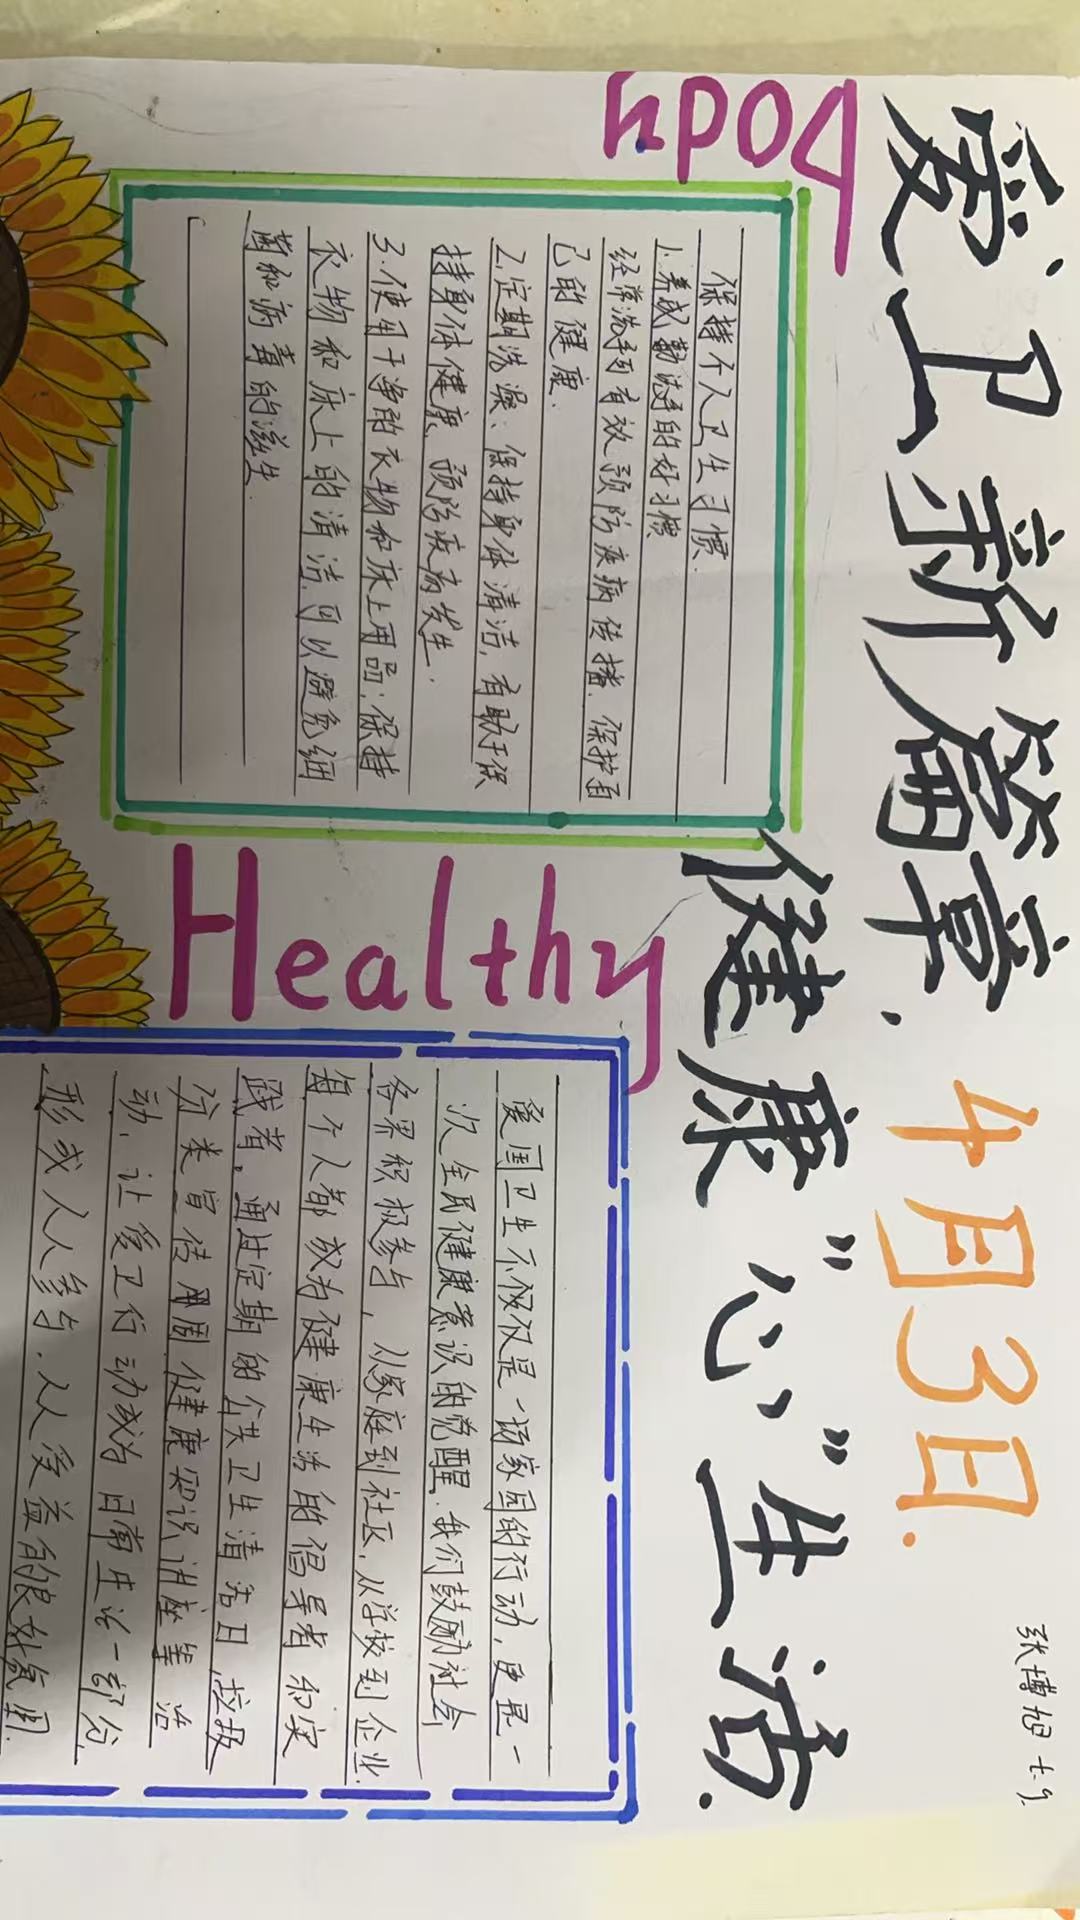 爱卫新篇章. 4月3日.
健康“心”生活.
张博旭 七.9.
Body
保持个人卫生习惯.
1.养成勤洗手的好习惯
经常洗手可有效预防疾病传播.保护自
己的健康.
2.定期洗澡:保持身体清洁,有助于保
持身体健康.预防疫病发生.
3.使用干净的衣物和床上用品:保持
衣物和床上的清洁.可以避免细
菌和病毒的滋生.
Healthy
爱国卫生不仅仅是一场家园的行动,更是一
次全民健康意识的觉醒.我们鼓励社会
各界积极参与,从家庭到社区,从学校到企业.
每个人都成为健康生活的倡导者和实
践者。通过定期的公共卫生清洁日,垃圾
分类宣传周健康知识讲座等活
动,让爱卫行动成为日常生活一部分,
形成人人参与.人人受益的良好氛围.